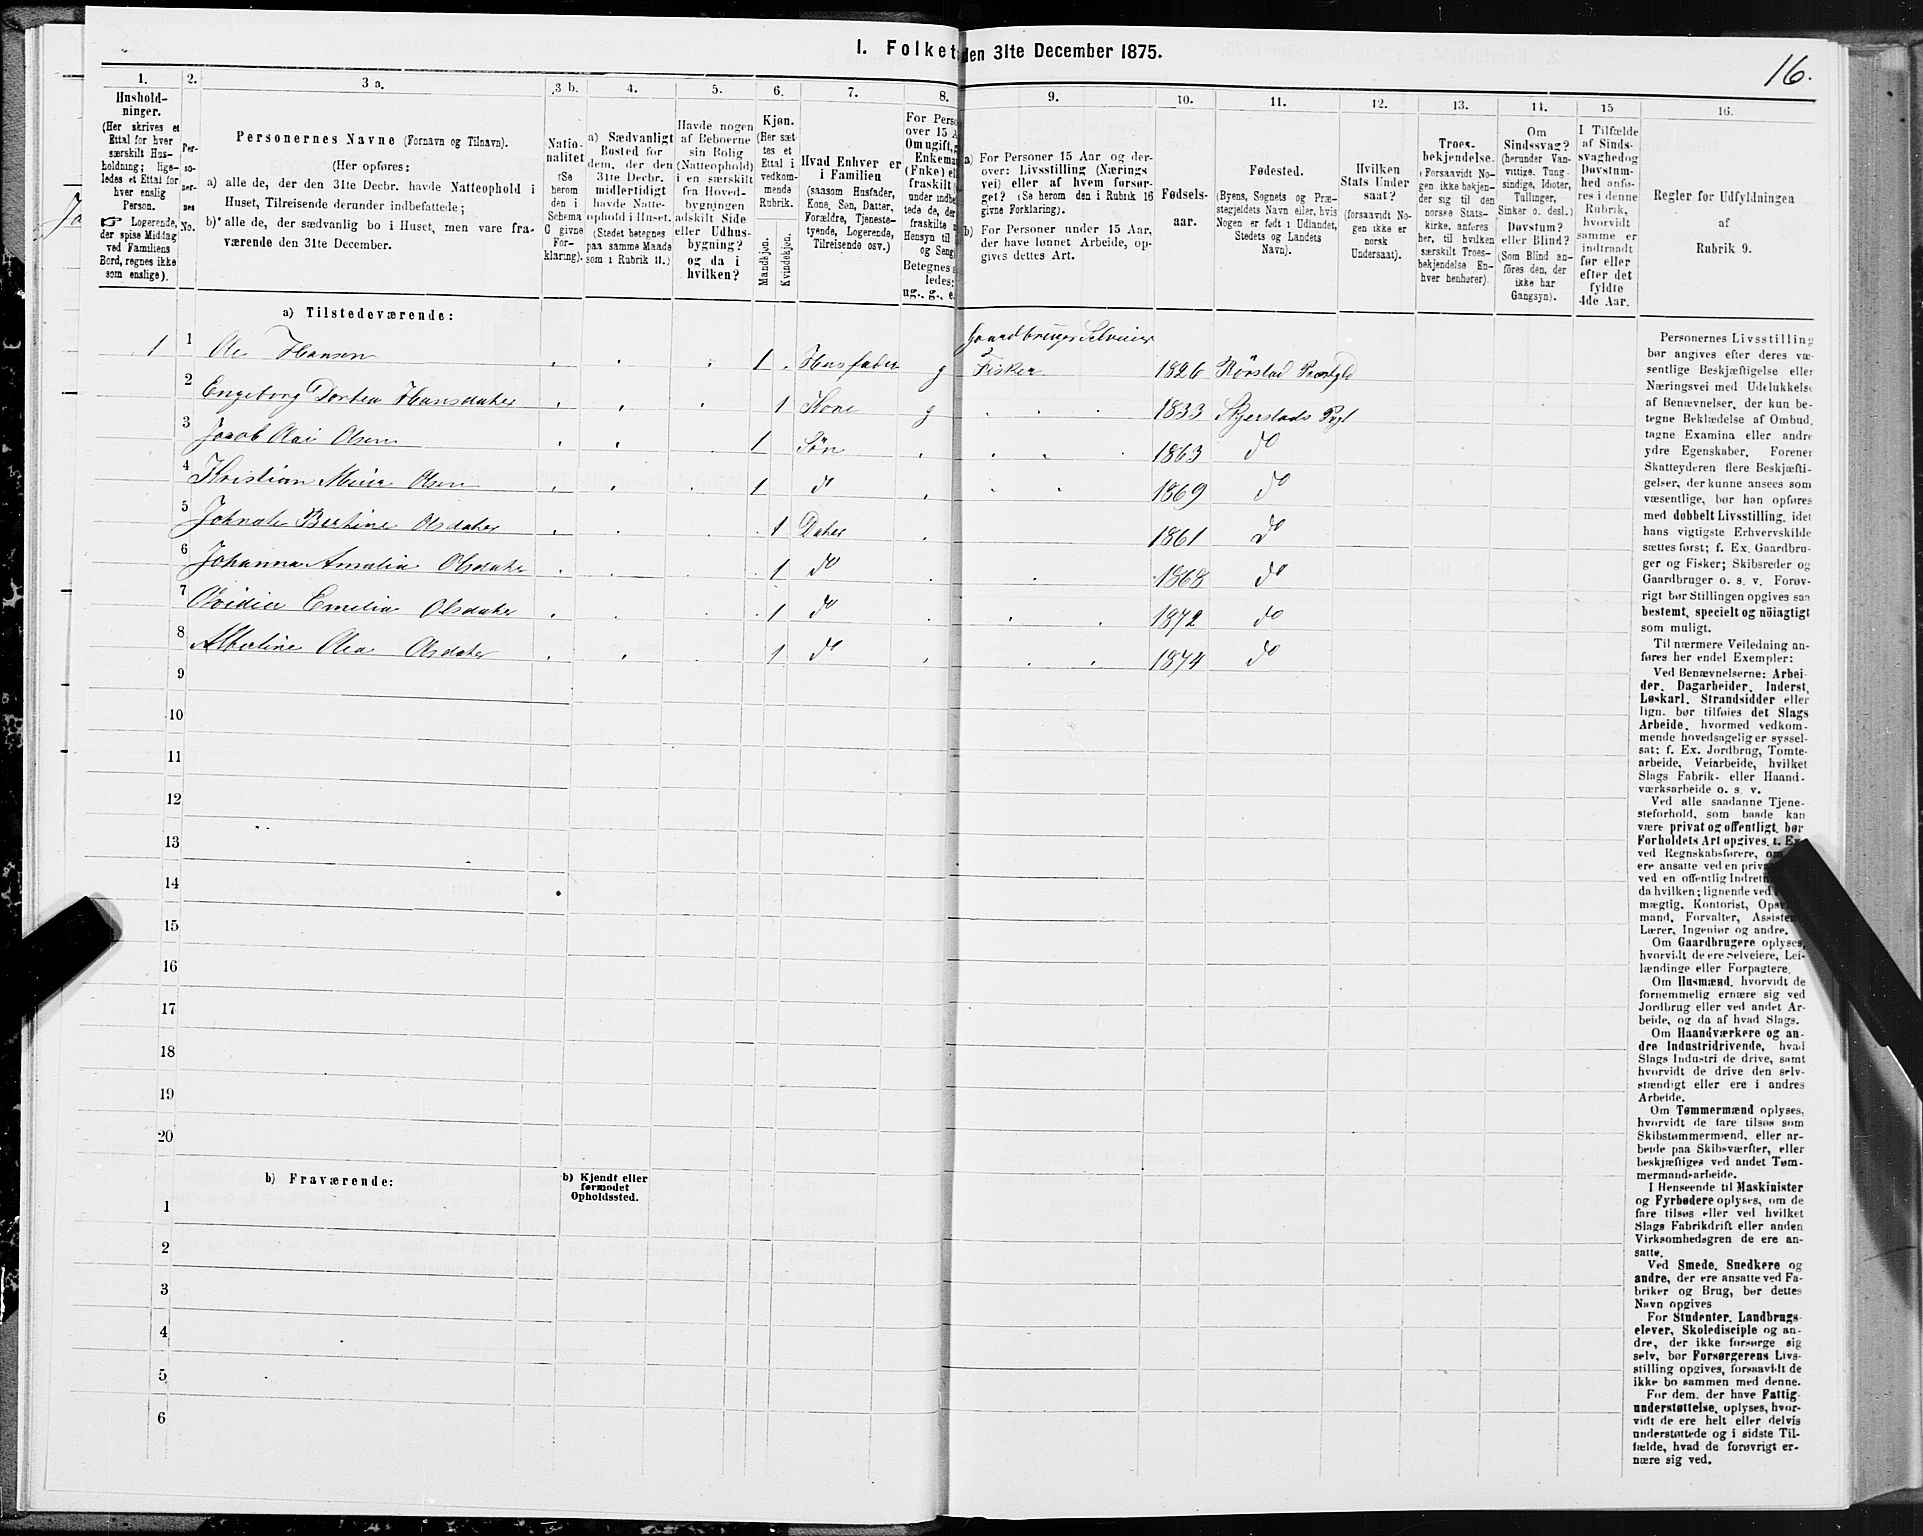 I. Folket den 31te December 1875.
16.
1.
Hushold-
ninger.
(Her skrives et
Ettal for hver
særskilt Hus-
holdning; lige-
ledes et Ettal for
hver enslig
Person.
☞ Logerende,
der spise Middag
ved Familiens
Bord, regnes ikke
som enslige).
2.
Per-
so-
ner-
nes
No.
3 a.
Personernes Navne (Fornavn og Tilnavn).
(Her opføres:
a) alle de, der den 31te Decbr. havde Natteophold i
Huset, Tilreisende derunder indbefattede;
b) alle de, der sædvanlig bo i Huset, men vare fra-
værende den 31te December.
3 b.
Natio-
nalitet
(Se
herom
den i
Schema
C givne
For-
klaring).
4.
a) Sædvanligt
Bosted for
dem, der den
31te Decbr.
midlertidigt
havde Natte-
ophold i Huset.
(Stedet betegnes
paa samme Maade
som i Rubrik 11.)
5.
Havde nogen
af Beboerne
sin Bolig
(Natteophold)
i en særskilt
fra Hoved-
bygningen
adskilt Side
eller Udhus-
bygning?
og da i
hvilken?
6.
Kjøn.
(Her sæt-
tes et
Ettal i
vedkom-
mende
Rubrik.
Mandkjøn.
Kvindekjøn.
7.
Hvad Enhver er
i Familien
(saasom Husfader,
Kone, Søn, Datter,
Forældre, Tjeneste-
tyende, Logerende,
Tilreisende osv.)
8.
For Perso
over 15 A
Om ugift, g
Enkemand
(Enke) ell
fraskilt
under indbe
tede de, der
fraskilte
Hensyn til
og Seng
Betegnes s
ledes:
ug., g., e.
9.
a) For Personer 15 Aar og der-
over: Livsstilling (Nærings-
vei) eller af hvem forsør-
get? (Se herom den i Rubrik 16
givne Forklaring).
b) For Personer under 15 Aar,
der have lønnet Arbeide, op-
gives dettes Art.
10.
Fødsels-
aar.
11.
Fødested.
(Byens, Sognets og Præ-
stegjeldets Navn eller, hvis
Nogen er født i Udlandet,
Stedets og Landets
Navn).
12.
Hvilken
Stats Under-
saat?
(forsaavidt No-
gen ikke er
norsk
Undersaat).
13.
Troes-
bekjendelse.
(Forsaavidt No-
gen ikke bekjen-
der sig til den
norske Stats-
kirke, anføres
her, til hvilken
særskilt Troes-
bekjendelse En-
hver henhører).
14.
Om
Sindssvag?
(herunder Van-
vittige, Tung-
sindige, Idioter,
Tullinger,
Sinker o. desl.)
Døvstum?
eller Blind?
(Som Blind an-
føres den, der
ikke har
Gangsyn).
15
I Tilfælde
af Sinds-
svaghed og
Døvstum-
hed anfø-
res i denne
Rubrik,
hvorvidt
samme er
indtraadt
før eller
efter det
fyldte
4de Aar.
16.
Regler for Udfyldningen
af
Rubrik 9.
a) Tilstedeværende:
Gaardbruger Selveier
1 1 Ole Hansen 1 Husfader g Fisker 1826 Rörstad Præstgld
2 Engeborg Dortea Hansdatter 1 Kone g 1833 Skjerstads Pgl
3 Jacob Olai Olsen 1 Søn 1863 do
4 Kristian Meier Olsen 1 d 1869 do
5 Johnale Bertine Olsdater 1 Dater 1861 do
6 Johanna Amalia Olsdater 1 do 1868 do
7 Ovidia Emelia Olsdater 1 do 1872 do
8 Albertine Olea Olsdater 1 do 1874 do
9
10
11
12
13
14
15
16
17
18
19
20
b) Fraværende:
b) Kjendt eller
formodet
Opholdssted.
1
2
3
4
5
6
Personernes Livsstilling
bør angives efter deres væ-
sentlige Beskjæftigelse eller
Næringsvei med Udelukkelse
af Benævnelser, der kun be-
tegne Beklædelse af Ombud,
tagne Examina eller andre
ydre Egenskaber. Forener
Skatteyderen flere Beskjæfti-
gelser, der kunne ansees som
væsentlige, bør han opføres
med dobbelt Livsstilling, idet
hans vigtigste Erhvervskilde
sættes først; f. Ex. Gaardbru-
ger og Fisker; Skibsreder og
Gaardbruger o. s. v. Forøv-
rigt bør Stillingen opgives saa
bestemt, specielt og nöiagtigt
som muligt.
Til nærmere Veiledning an-
føres her endel Exempler:
Ved Benævnelserne: Arbei-
der, Dagarbeider, Inderst,
Løskarl, Strandsidder eller
lign. bør tilføies det Slags
Arbeide, hvormed vedkom-
mende hovedsagelig er syssel-
sat; f. Ex. Jordbrug, Tomte-
arbeide, Veiarbeide, hvilket
Slags Fabrik- eller Haand-
værksarbeide o. s. v.
Ved alle saadanne Tjene-
steforhold, som baade kan
være privat og offentligt, bør
Forholdets Art opgives, f. Ex.
ved Regnskabsførere, om
ere ansatte ved en privat
ved en offentlig Indretn
da hvilken; lignende ved
mægtig, Kontorist, Opsyns
mand, Forvalter, Assistent
Lærer, Ingeniør og andre.
Om Gaardbrugere oplyses,
hvorvidt de ere Selveiere, Lei-
lændinge eller Forpagtere.
Om Husmænd, hvorvidt de
fornemmelig ernære sig ved
Jordbrug eller ved andet Ar-
beide, og da af hvad Slags.
Om Haandværkere og an-
dre Industridrivende, hvad
Slags Industri de drive, samt
hvorvidt de drive den selv-
stændigt eller ere i andres
Arbeide.
Om Tømmermænd oplyses,
hvorvidt de fare tilsøs som
Skibstømmermænd, eller ar-
beide paa Skibsværfter, eller
beskjæftiges ved andet Tøm-
mermandsarbeide.
I Henseende til Maskinister
og Fyrbødere oplyses, om de
fare tilsøs eller ved hvilket
Slags Fabrikdrift eller anden
Virksomhedsgren de ere an-
satte.
Ved Smede, Snedkere og
andre, der ere ansatte ved Fa-
briker og Brug, bør dettes
Navn opgives
For Studenter, Landbrugs-
elever, Skoledisciple og an-
dre, der ikke forsørge sig
selv, bør Forsørgerens Livs-
stilling opgives, forsaavidt de
ikke bo sammen med denne.
For dem, der have Fattig-
understøttelse, oplyses, hvor-
vidt de ere helt eller delvis
understøttede og i sidste Til-
fælde, hvad de forøvrigt er-
nære sig ved.